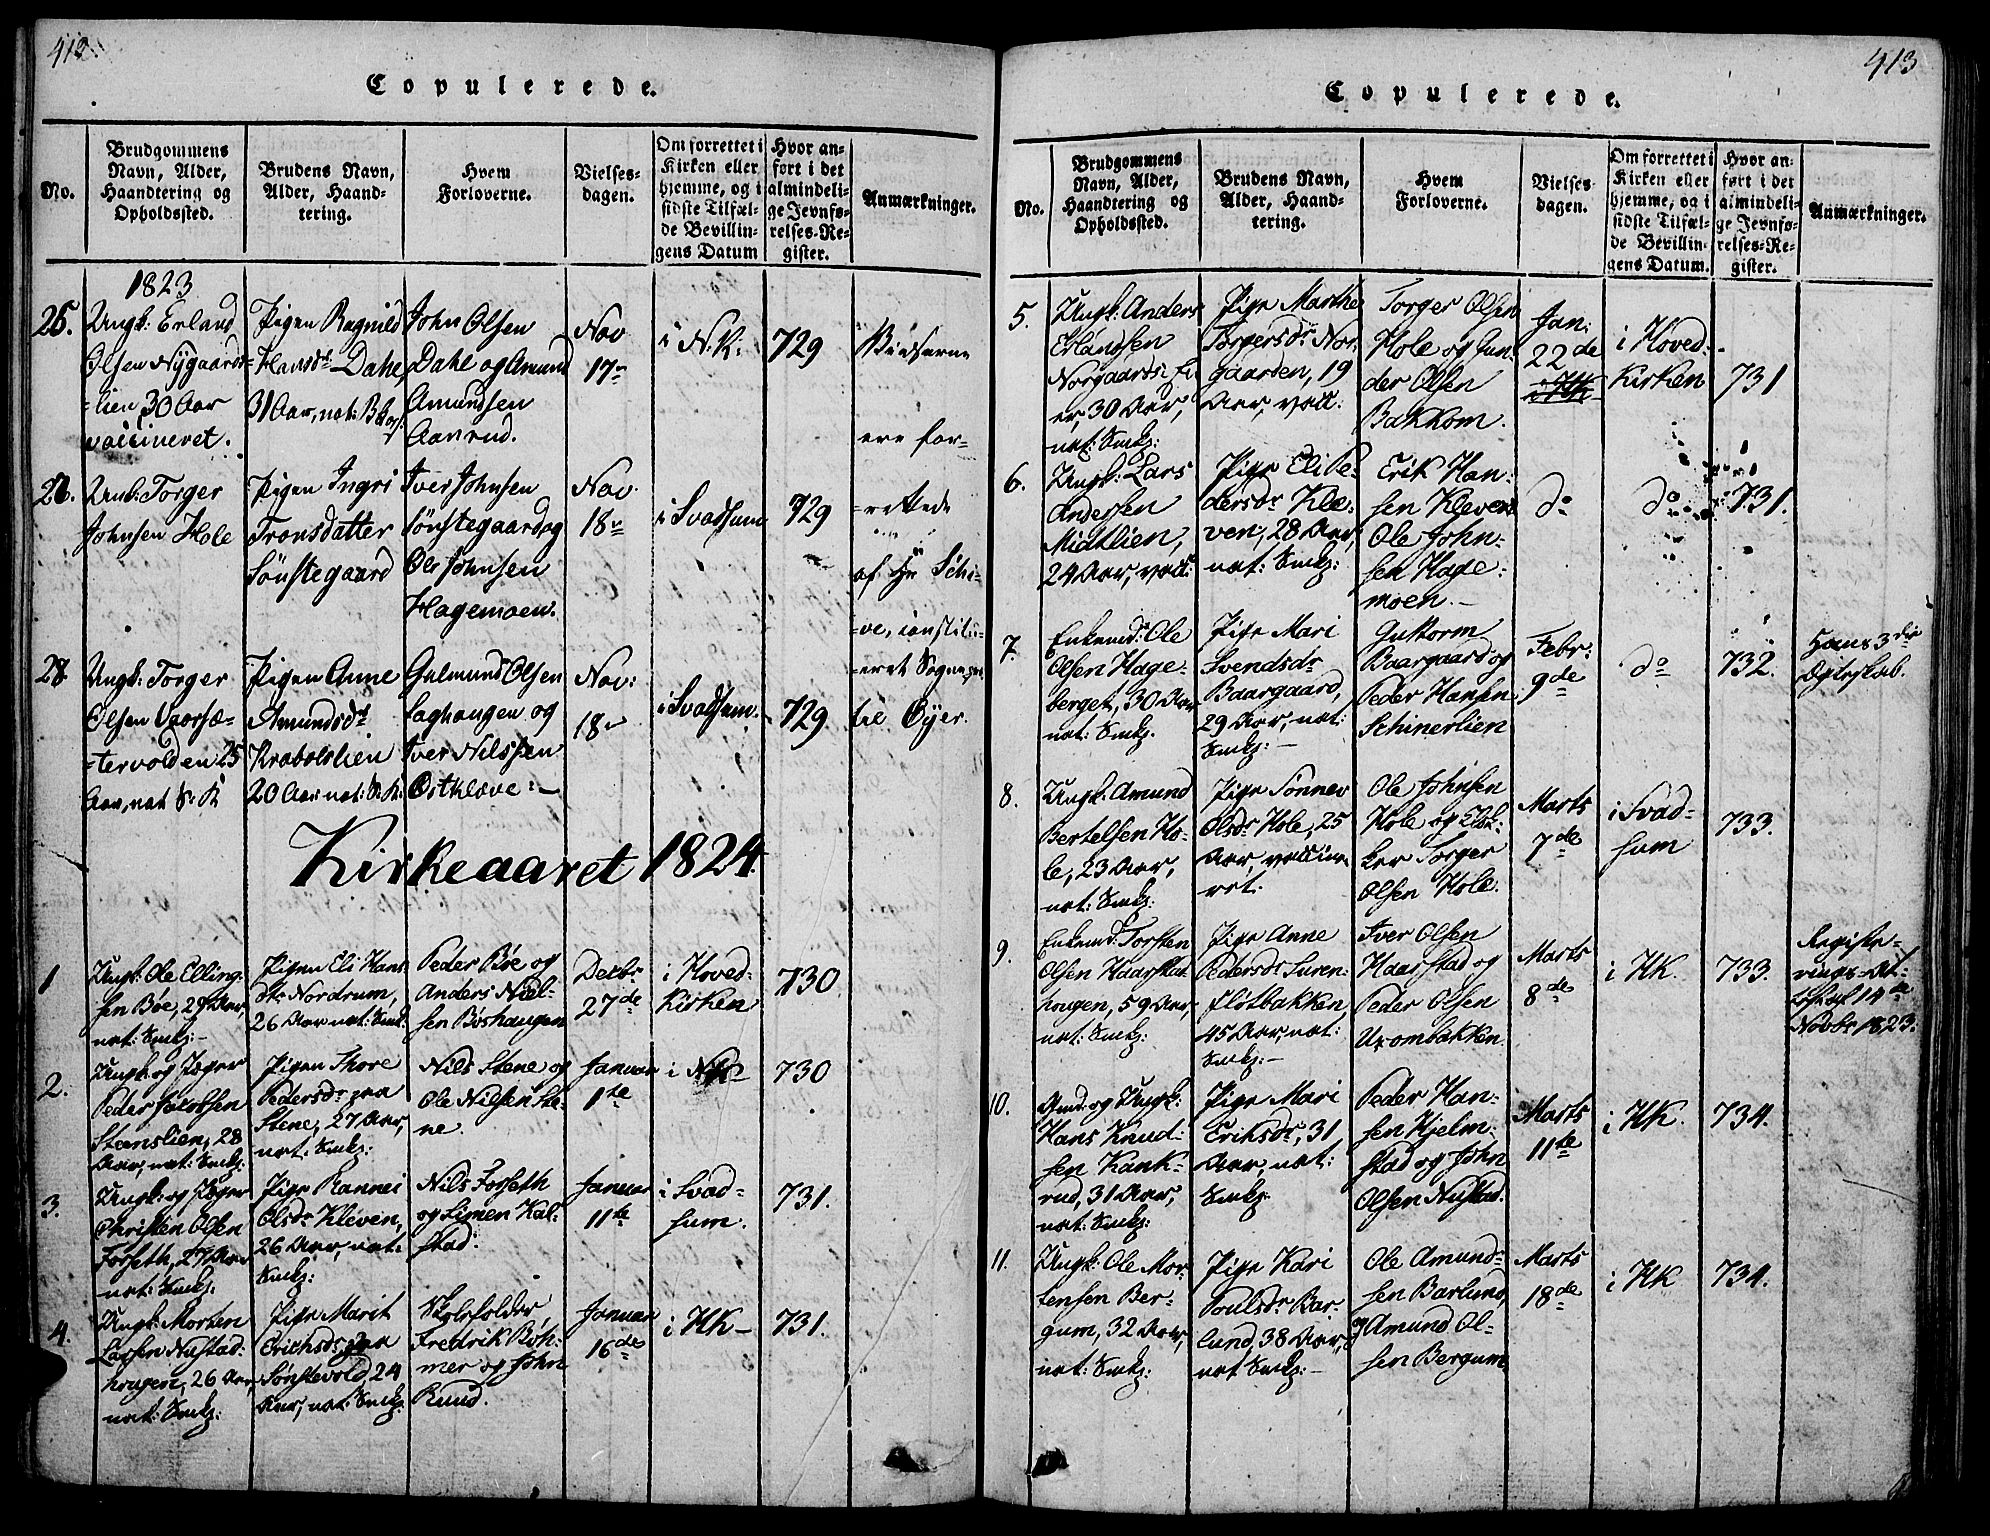 412.
Copulerede.
No.
Brudgommens
Navn, Alder,
Haandtering og
Opholdssted.
Brudens Navn,
Alder, Haand-
tering.
Hvem
Forloverne.
Vielses-
dagen.
Om forrettet i
Kirken eller
hjemme, og i
sidste Tilfæl-
de Bevillin-
gens Datum
Hvor an-
ført i det
almindeli-
ge Jevnfø-
relses-Re-
gister.
Anmærkninger.
1823
26.
Ungk: Erland
Olsen Nygaards-
-lien 30 Aar
vaccineret.
Pigen Ragnild
Hansdr Dahe,
31 Aar, nat:
John Olsen
Dahl og Amund
Amundsen
Aanrud.
Nov
17
i N.K:
729
Ungk: Torger
Johnsen Hole
Pigen Ingri
Tronsdatter
Sönstegaard
Iver Johnsen
Sönstegaard og
Ole Johnsen
Hagemoen.
Nov
18
i Svadsum
729
28
Ungk: Torger
Olsen Vaarsæ-
-tervolden 25
Aar, nat S: K
Pigen Anne
Amundsdr
Krabolslien
20 Aar nat: S: K:
Gulmund Olsen
Laghaugen og
Iver Nilssen
Östkleve:—
Nov:
18
i Svadsum.
729
ere for-
-rettede
af Hr Schi-
-ve, constitu-
-eret Sogne
til Öyer.
Kirkeaaret 1824.
1
Ungk: Ole Elling-
sen Böe, 29 Aar,
nat: Smkp:—
Pigen Eli Hans
dtr Nordrum,
26 Aar nat: Smk.
Peder Böe og
Anders Niel-
sen Böshaugen
Decbr
27de
i Hoved-
Kirken
730
2.
Ungk: og Jæger
Peder Jacobsen
Stenslien, 28
Aar, nat: Smkp:
Pigen Thore
Pedersdr paa
Stene, 27 Aar,
nat: Smkp:
Nils Stene og
Ole Nilsen Ste-
ne.
Januar
1te
i NK—
730
3.
Ungk: og Jæger
Christen Olsen
Forseth, 27 Aar
nat: Smkp.
Pige Rannei
Olsdr Kleven,
26 Aar, nat:
Smkp:
Nils Forseth
og Simen Kal-
stad.
Januar
11te
i Svad-
sum.
731.
4.
Ungk: Morten
Larsen Nustad-
haugen, 26 Aar,
nat: Smkp:
Pige Marit
Erichsdr paa
Sönstevold, 24
Aar, nat: Smkp.
Skoleholder
Fredrik Böh-
mer og John
Ruud.
Januar
16de
i HK—
731.
413
Copulerede.
No.
Brudgommens
Navn, Alder,
Haandtering og
Opholdssted.
Brudens Navn,
Alder, Haand-
tering.
Hvem
Forloverne.
Vielses-
dagen.
Om forrettet i
Kirken eller
hjemme, og i
sidste Tilfæl-
de Bevillin-
gens Datum.
Hvor an-
ført i det
almindeli-
ge Jevnfø-
relses-Re-
gister.
Anmærkninger.
5.
Ungk: Anders
Erlandsen
Norgaards Ei
er, 30 Aar,
nat: Smkp:
Pige Marthe
Torgersdr Nor-
gaarden, 19
Aar, vacc:
Torger Olsen
Hole og Gun-
der Olsen
Bakkom.
Jan:
22de
i Hoved-
Kirken
731
6.
Ungk: Lars
Andersen
Midtlien,
24 Aar, vacc:
Pige Eli Pe-
dersdr Kle-
ven, 28 Aar,
nat: Smkp:
Erik Han-
sen Kleven
Ole John-
sen Hage-
moen.—
do
do
731.
7.
Enkemd: Ole
Olsen Hage-
berget, 30 Aar
nat: Smkp.
Pige Mari
Svendsdr
Baargaard,
29 Aar, nat:
Smkp:—
Guttorm
Baargaard og
Peder Hansen
Skinerlien
Febr:
9de
do
732.
Hans 3die
Egteskab.
8.
Ungk: Amund
Bertelsen Ho-
le, 23 Aar,
nat: Smkp:
Pige Sönnev
Olsdr Hole, 25
Aar, vaccine-
ret.
Ole Johnsen
Hole og Elsk-
ker Torger
Olsen Hole.
Marts
7de
i Svad-
sum
733.
9.
Enkemd: Torsten
Olsen Haarstad-
haugen, 59 Aar,
nat: Smkp:
Pige Anne
Pedersdr Suren-
flötbakken,
45 Aar, nat:
Smkp:—
Iver Olsen
Haarstad og
Peder Olsen
Uxombakken
Marts
8de
i HK.
733.
Registe-
rings-At-
test af 14de
Novbr 1823.
10.
Smd. og Ungk:
Hans Knud-
sen Kank-
rud, 31 Aar,
nat: Smkp:
Pige Mari
Eriksdr, 31
Aar, nat:
Smkp.
Peder Han-
sen Hjelm-
stad og John
Olsen Nustad.
Marts
11te
i HK.
734.
11.
Ungk: Ole Mor-
tensen Ber-
gum, 32 Aar,
nat: Smkp:
Pige Kari
Poulsdr Bar-
lund, 38 Aar,
nat Smkp:—
Ole Amund-
sen Barlund,
og Amund Ol-
sen Bergum
Marts
18de
i HK
734.